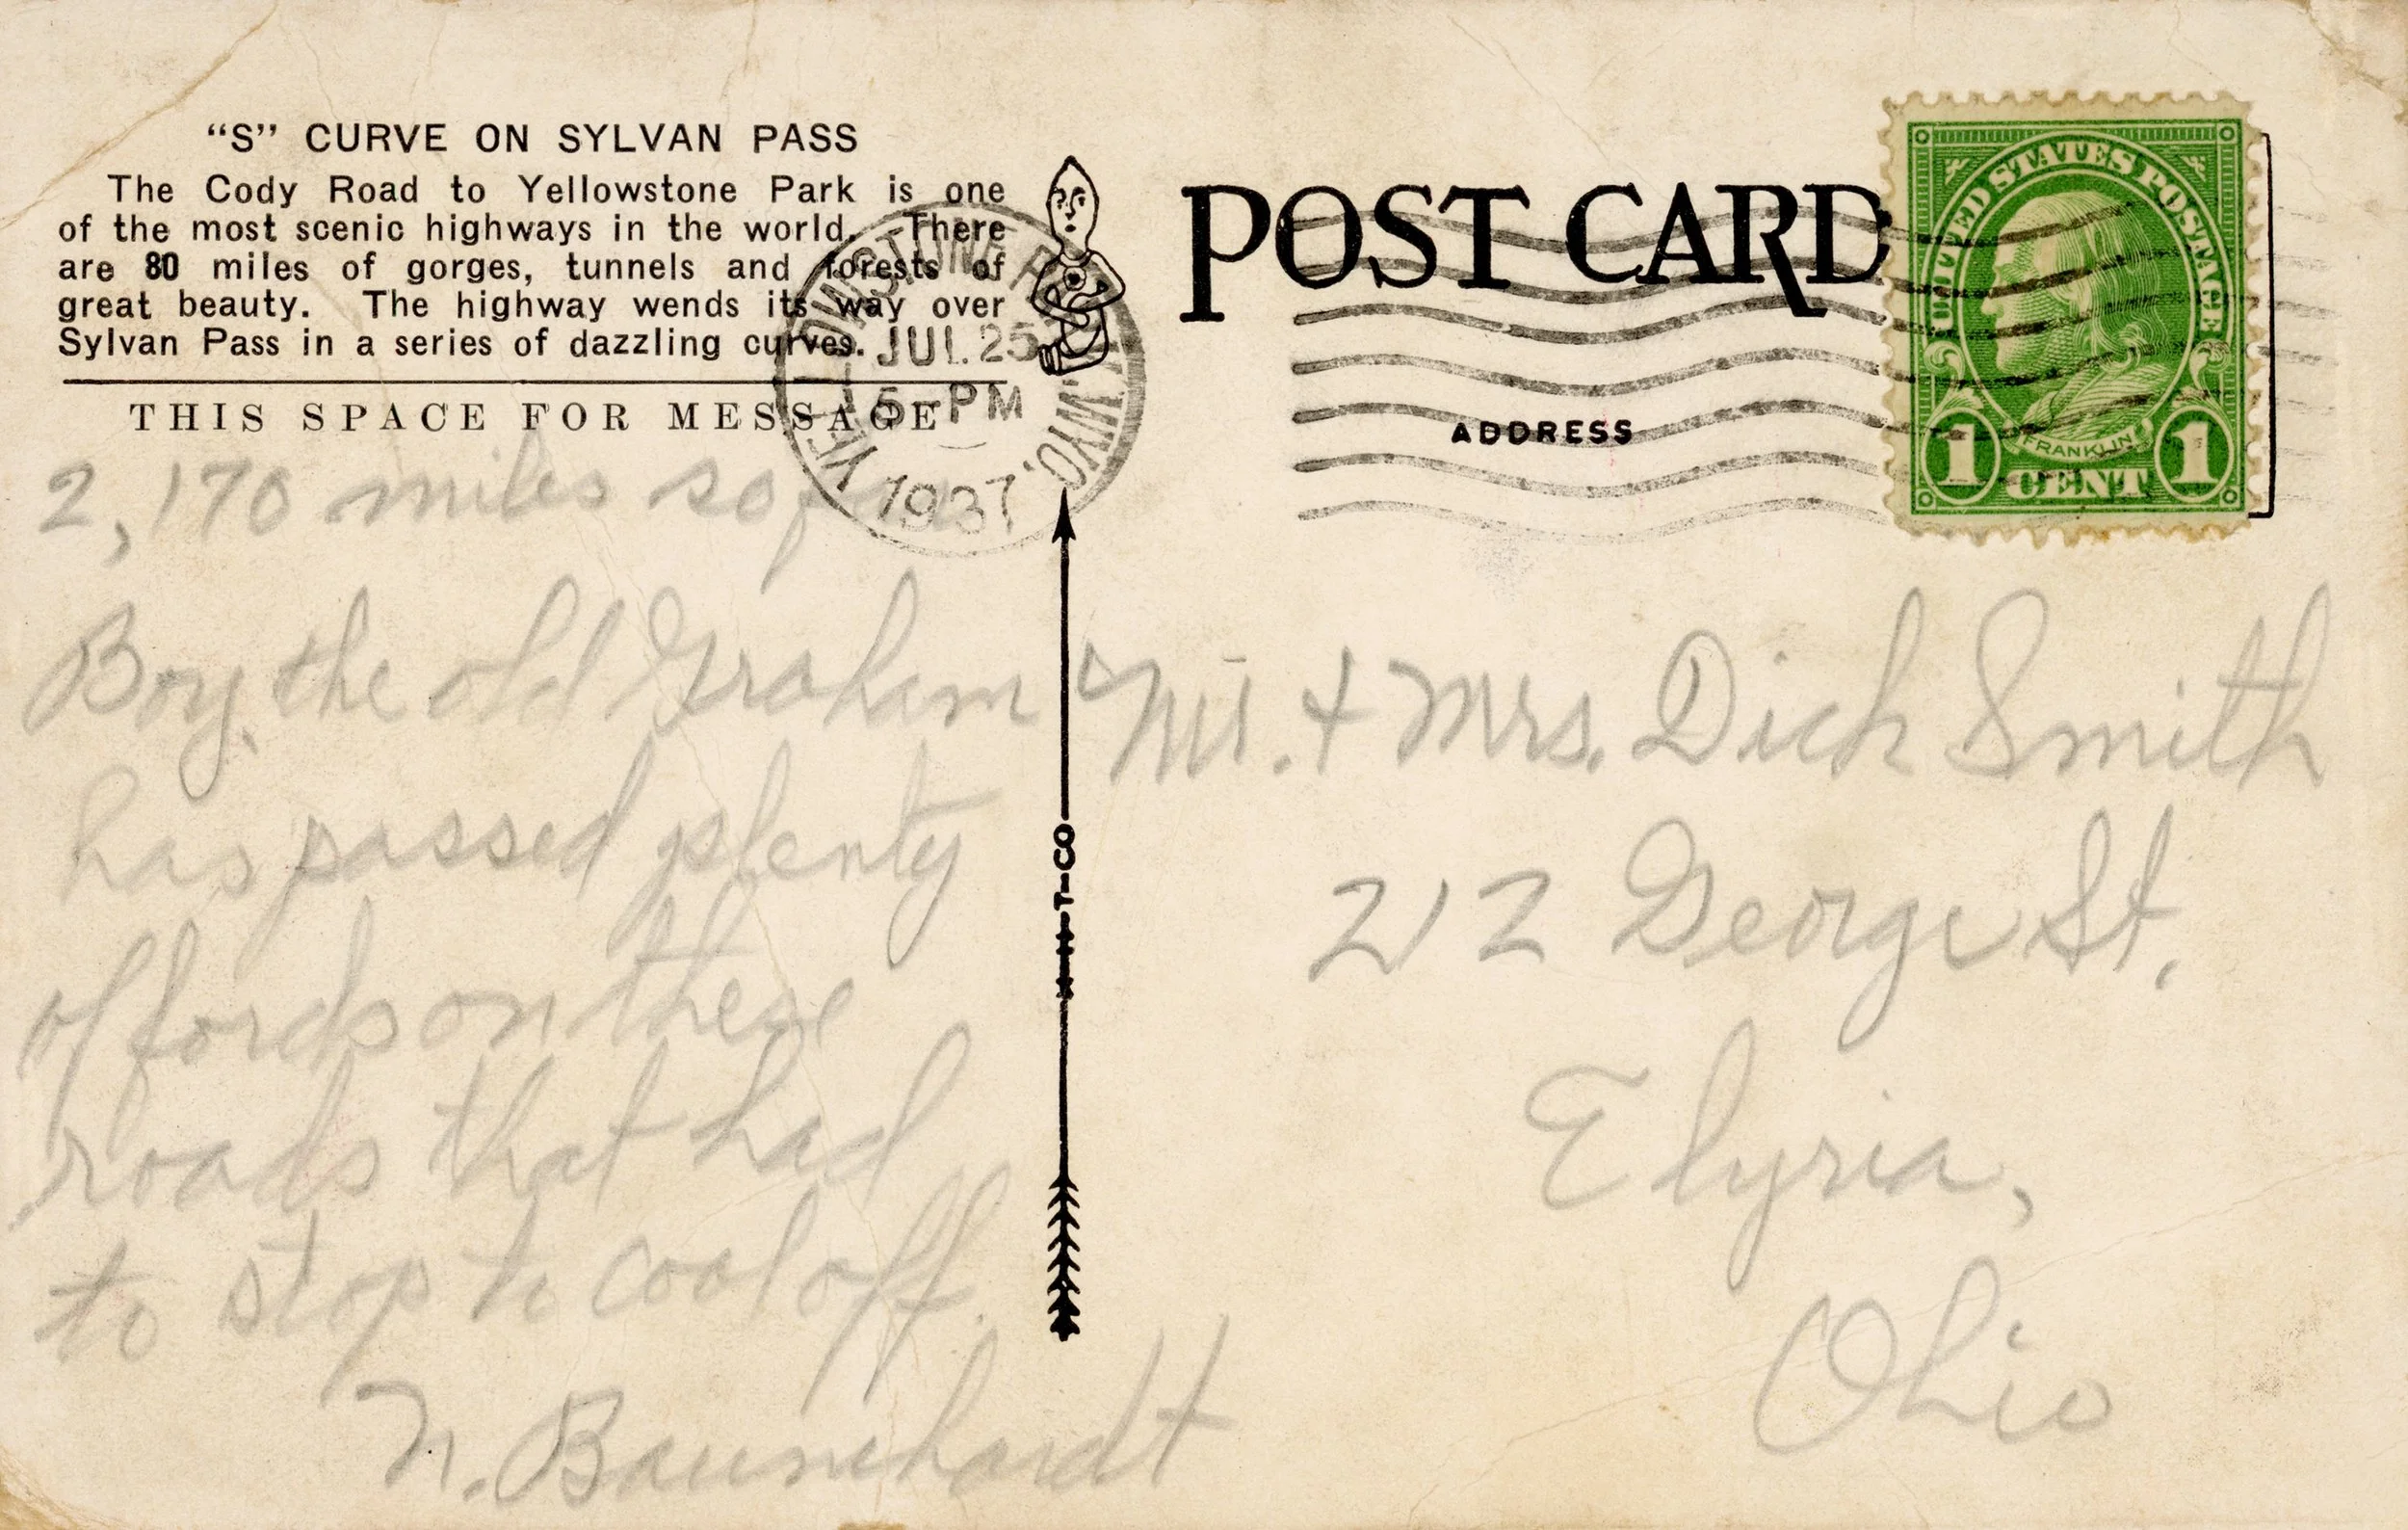 "S" CURVE ON SYLVAN PASS
The Cody Road to Yellowstone Park is one
of the most scenic highways in the world. There
are 80 miles of gorges, tunnels and forests of
great beauty. The highway wends its way over
Sylvan Pass in a series of dazzling curves.
THIS SPACE FOR MESSAGE
2,170 miles so far
Boy, the old Graham
has passed plenty
of fords on these
roads that had
to stop to cool off.
N. Baumhardt
YELLOWSTONE PARK, WYO.
JUL 25
5-PM
1937
H-H-T-CO
POST CARD
ADDRESS
UNITED STATES POSTAGE
FRANKLIN
1 CENT 1
Mr. & Mrs. Dick Smith
212 George St.
Elyria,
Ohio